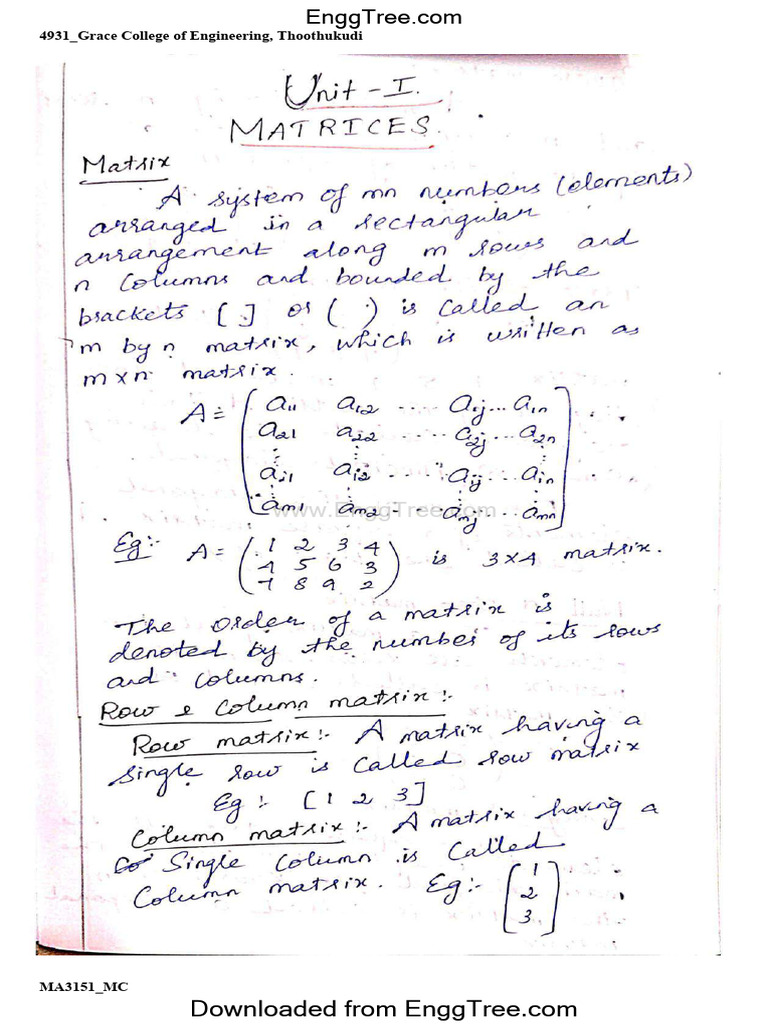 EnggTree.com
4931_Grace College of Engineering, Thoothukudi
Unit - I.
MATRICES.
Matrix
A system of mn numbers (elements)
arranged in a rectangular
arrangement along m rows and
n columns and bounded by the
brackets [ ] or ( ) is called an
m by n matrix, which is written as
m x n matrix.
A = ( a11 a12 .... a1j ... a1n
a21 a22 .... a2j ... a2n
ai1 ai2 .... aij ... ain
am1 am2 .... amj ... amn )
www.EnggTree.com
Eg:- A = ( 1 2 3 4
4 5 6 3
7 8 9 2 ) is 3x4 matrix.
The order of a matrix is
denoted by the number of its rows
and columns.
Row & Column matrix:-
Row matrix:- A matrix having a
single row is called row matrix
Eg:- [1 2 3]
Column matrix:- A matrix having a
Single column is called
Column matrix. Eg:- ( 1
2
3 )
MA3151_MC
Downloaded from EnggTree.com